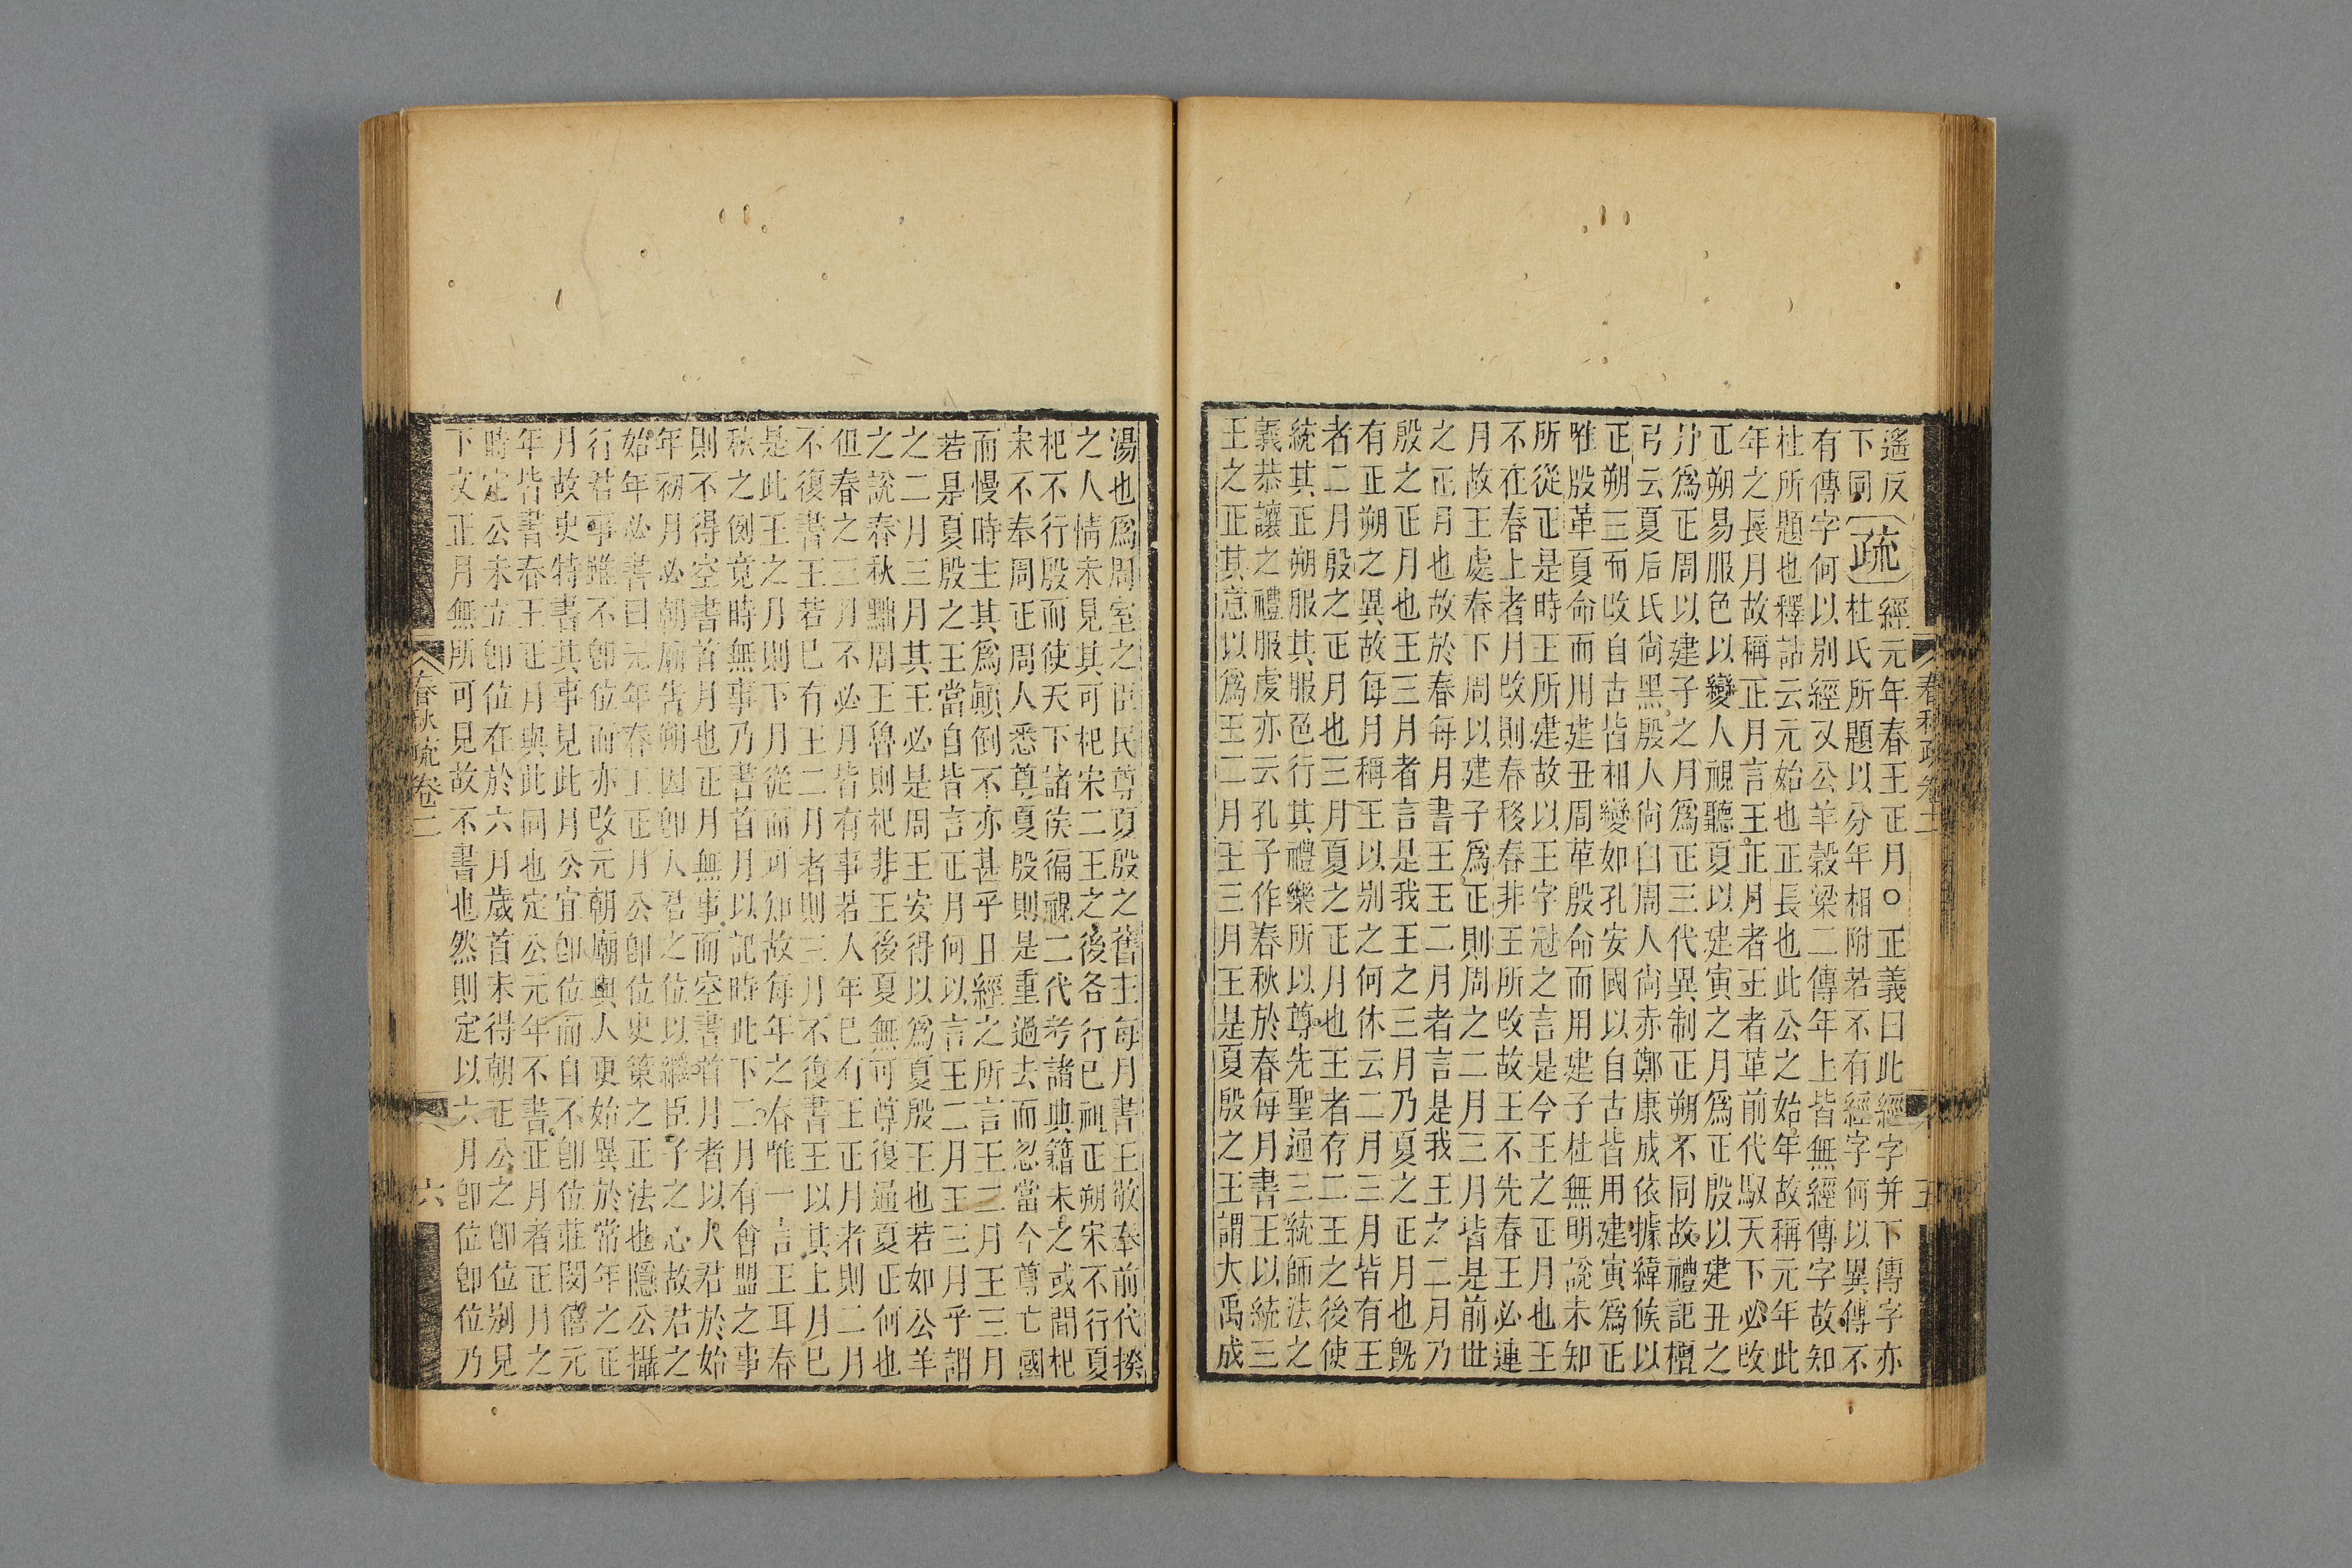 遙反
下同
疏
經元年春王正月○正義曰此經字并下傳字亦
杜氏所題以分年相附若不有經字何以異傳不
有傳字何以别經又公羊榖梁二傳年上皆無經傳字故知
杜所題也釋詁云元始也正長也此公之始年故稱元年此
年之長月故稱正月言王正月者王者革前代馭天下必改
正朔易服色以變人視聽夏以建寅之月爲正殷以建丑之
月爲正周以建子之月爲正三代異制正朔不同故禮記檀
弓云夏后氏尚黑殷人尚白周人尚赤鄭康成依據緯候以
正朔三而改自古皆相變如孔安國以自古皆用建寅爲正
唯殷革夏命而用建丑周革殷命而用建子杜無明說未知
所從正是時王所建故以王字冠之言是今王之正月也王
不在春上者月改則春移春非王所改故王不先春王必連
月故王處春下周以建子爲正則周之二月三月皆是前世
之正月也故於春每月書王王二月者言是我王之二月乃
殷之正月也王三月者言是我王之三月乃夏之正月也旣
有正朔之異故每月稱王以别之何休云二月三月皆有王
者二月殷之正月也三月夏之正月也王者存二王之後使
統其正朔服其服色行其禮樂所以尊先聖通三統師法之
義恭讓之禮服虔亦云孔子作春秋於春每月書王以統三
王之正其意以爲王二月王三月王是夏殷之王謂大禹成
春秋疏卷二
五
湯也爲周室之臣民尊夏殷之舊主每月書王敬奉前代揆
之人情未見其可杞宋二王之後各行已祖正朔宋不行夏
杞不行殷而使天下諸侯徧視二代考諸典籍未之或聞杞
宋不奉周正周人悉尊夏殷則是重過去而忽當今尊亡國
而慢時主其爲顚倒不亦甚乎且經之所言王二月王三月
若是夏殷之王當自皆言正月何以言王二月王三月乎謂
之二月三月其王必是周王安得以爲夏殷王也若如公羊
之說春秋黜周王魯則杞非王後夏無可尊復通夏正何也
但春之三月不必月皆有事若人年已有王正月者則二月
不復書王若已有王二月者則三月不復書王以其上月已
是此王之月則下月從而可知故每年之春唯一言王耳春
秋之例竟時無事乃書首月以記時此下二月有會盟之事
則不得空書首月也正月無事而空書首月者以人君於始
年初月必朝廟告朔因卽人君之位以繼臣子之心故君之
始年必書曰元年春王正月公卽位史策之正法也隱公攝
行君事雖不卽位而亦改元朝廟與人更始異於常年之正
月故史特書其事見此月公宜卽位而自不卽位莊閔僖元
年皆書春王正月與此同也定公元年不書正月者正月之
時定公未立卽位在於六月歲首未得朝正公之卽位别見
下文正月無所可見故不書也然則定以六月卽位卽位乃
春秋疏卷二
六